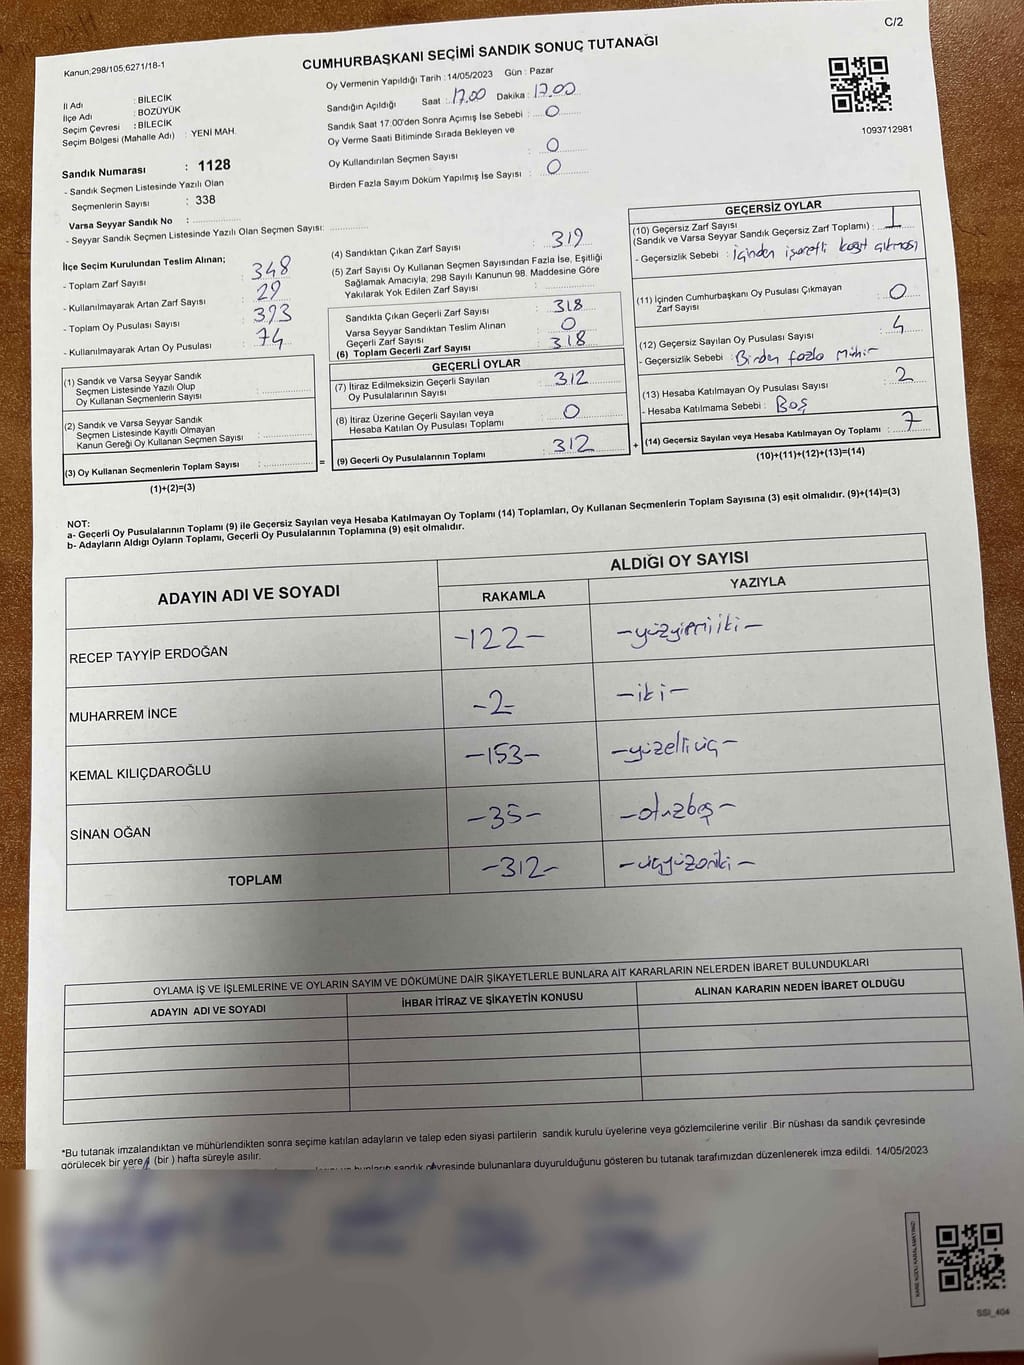 C/2
Kanun;298/105;6271/18-1
CUMHURBAŞKANI SEÇİMİ SANDIK SONUÇ TUTANAĞI
Oy Vermenin Yapıldığı Tarih : 14/05/2023 Gün : Pazar
İl Adı : BİLECİK
İlçe Adı : BOZÜYÜK
Seçim Çevresi : BİLECİK
Seçim Bölgesi (Mahalle Adı) : YENİ MAH.
Sandığın Açıldığı Saat : 17.00 Dakika : 17.00
Sandık Saat 17:00'den Sonra Açımış İse Sebebi : 0
Oy Verme Saati Bitiminde Sırada Bekleyen ve
Oy Kullandırılan Seçmen Sayısı : 0
Birden Fazla Sayım Döküm Yapılmış İse Sayısı : 0
1093712981
Sandık Numarası : 1128
- Sandık Seçmen Listesinde Yazılı Olan
Seçmenlerin Sayısı : 338
Varsa Seyyar Sandık No :
- Seyyar Sandık Seçmen Listesinde Yazılı Olan Seçmen Sayısı:
İlçe Seçim Kurulundan Teslim Alınan;
- Toplam Zarf Sayısı : 348
- Kullanılmayarak Artan Zarf Sayısı : 29
- Toplam Oy Pusulası Sayısı : 393
- Kullanılmayarak Artan Oy Pusulası : 74
(1) Sandık ve Varsa Seyyar Sandık
Seçmen Listesinde Yazılı Olup
Oy Kullanan Seçmenlerin Sayısı :
(2) Sandık ve Varsa Seyyar Sandık
Seçmen Listesinde Kayıtlı Olmayan
Kanun Gereği Oy Kullanan Seçmen Sayısı :
(3) Oy Kullanan Seçmenlerin Toplam Sayısı : =
(1)+(2)=(3)
(4) Sandıktan Çıkan Zarf Sayısı : 319
(5) Zarf Sayısı Oy Kullanan Seçmen Sayısından Fazla İse, Eşitliği
Sağlamak Amacıyla, 298 Sayılı Kanunun 98. Maddesine Göre
Yakılarak Yok Edilen Zarf Sayısı :
Sandıkta Çıkan Geçerli Zarf Sayısı : 318
Varsa Seyyar Sandıktan Teslim Alınan
Geçerli Zarf Sayısı : 0
(6) Toplam Geçerli Zarf Sayısı : 318
GEÇERLİ OYLAR
(7) İtiraz Edilmeksizin Geçerli Sayılan
Oy Pusulalarının Sayısı : 312
(8) İtiraz Üzerine Geçerli Sayılan veya
Hesaba Katılan Oy Pusulası Toplamı : 0
(9) Geçerli Oy Pusulalarının Toplamı : 312 +
GEÇERSİZ OYLAR
(10) Geçersiz Zarf Sayısı
(Sandık ve Varsa Seyyar Sandık Geçersiz Zarf Toplamı) : 1
- Geçersizlik Sebebi : İçinden işaretli kağıt çıkması
(11) İçinden Cumhurbaşkanı Oy Pusulası Çıkmayan
Zarf Sayısı : 0
(12) Geçersiz Sayılan Oy Pusulası Sayısı : 4
- Geçersizlik Sebebi : Birden fazla mühür
(13) Hesaba Katılmayan Oy Pusulası Sayısı : 2
- Hesaba Katılmama Sebebi : Boş
(14) Geçersiz Sayılan veya Hesaba Katılmayan Oy Toplamı : 7
(10)+(11)+(12)+(13)=(14)
NOT:
a- Geçerli Oy Pusulalarının Toplamı (9) ile Geçersiz Sayılan veya Hesaba Katılmayan Oy Toplamı (14) Toplamları, Oy Kullanan Seçmenlerin Toplam Sayısına (3) eşit olmalıdır. (9)+(14)=(3)
b- Adayların Aldığı Oyların Toplamı, Geçerli Oy Pusulalarının Toplamına (9) eşit olmalıdır.
ADAYIN ADI VE SOYADI
ALDIĞI OY SAYISI
RAKAMLA YAZIYLA
RECEP TAYYİP ERDOĞAN -122- -yüzyirmiiki-
MUHARREM İNCE -2- -iki-
KEMAL KILIÇDAROĞLU -153- -yüzelliüç-
SİNAN OĞAN -35- -otuzbeş-
TOPLAM -312- -üçyüzoniki-
OYLAMA İŞ VE İŞLEMLERİNE VE OYLARIN SAYIM VE DÖKÜMÜNE DAİR ŞİKAYETLERLE BUNLARA AİT KARARLARIN NELERDEN İBARET BULUNDUKLARI
ADAYIN ADI VE SOYADI İHBAR İTİRAZ VE ŞİKAYETİN KONUSU ALINAN KARARIN NEDEN İBARET OLDUĞU
*Bu tutanak imzalandıktan ve mühürlendikten sonra seçime katılan adayların ve talep eden siyasi partilerin sandık kurulu üyelerine veya gözlemcilerine verilir .Bir nüshası da sandık çevresinde
görülecek bir yere (bir ) hafta süreyle asılır.
sandık çevresinde bulunanlara duyurulduğunu gösteren bu tutanak tarafımızdan düzenlenerek imza edildi. 14/05/2023
KARE KODU KARALAMAYINIZ!
SSI_404